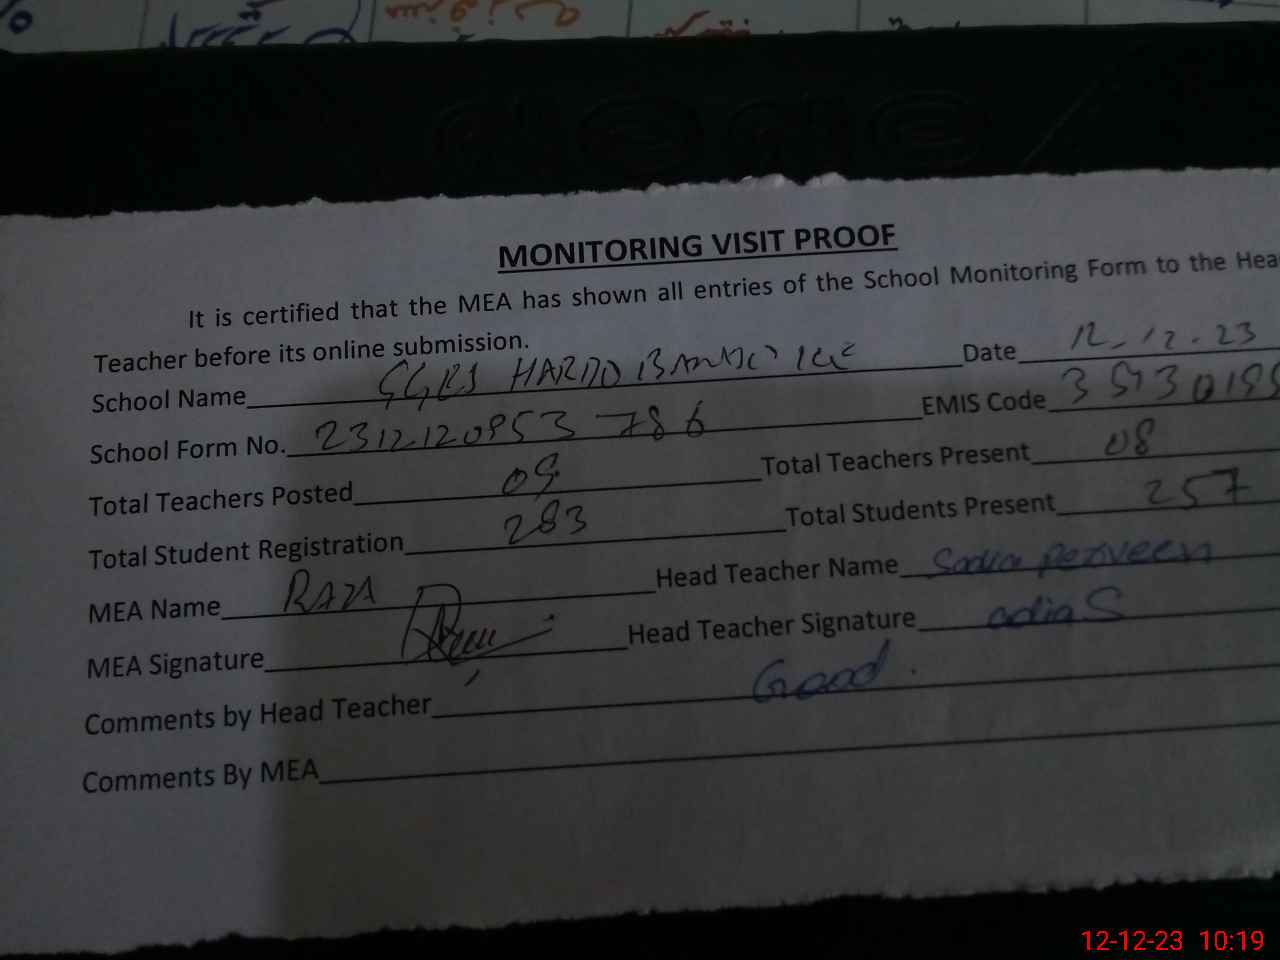 MONITORING VISIT PROOF
It is certified that the MEA has shown all entries of the School Monitoring Form to the Hea
Teacher before its online submission.
School Name HARDO Date 12.12.23
School Form No. 2312120953786 EMIS Code
Total Teachers Posted 09 Total Teachers Present 08
Total Student Registration 283 Total Students Present 257
MEA Name RAZA Head Teacher Name Sadia perveen
MEA Signature Head Teacher Signature adiaS
Comments by Head Teacher Good.
Comments By MEA
12-12-23 10:19